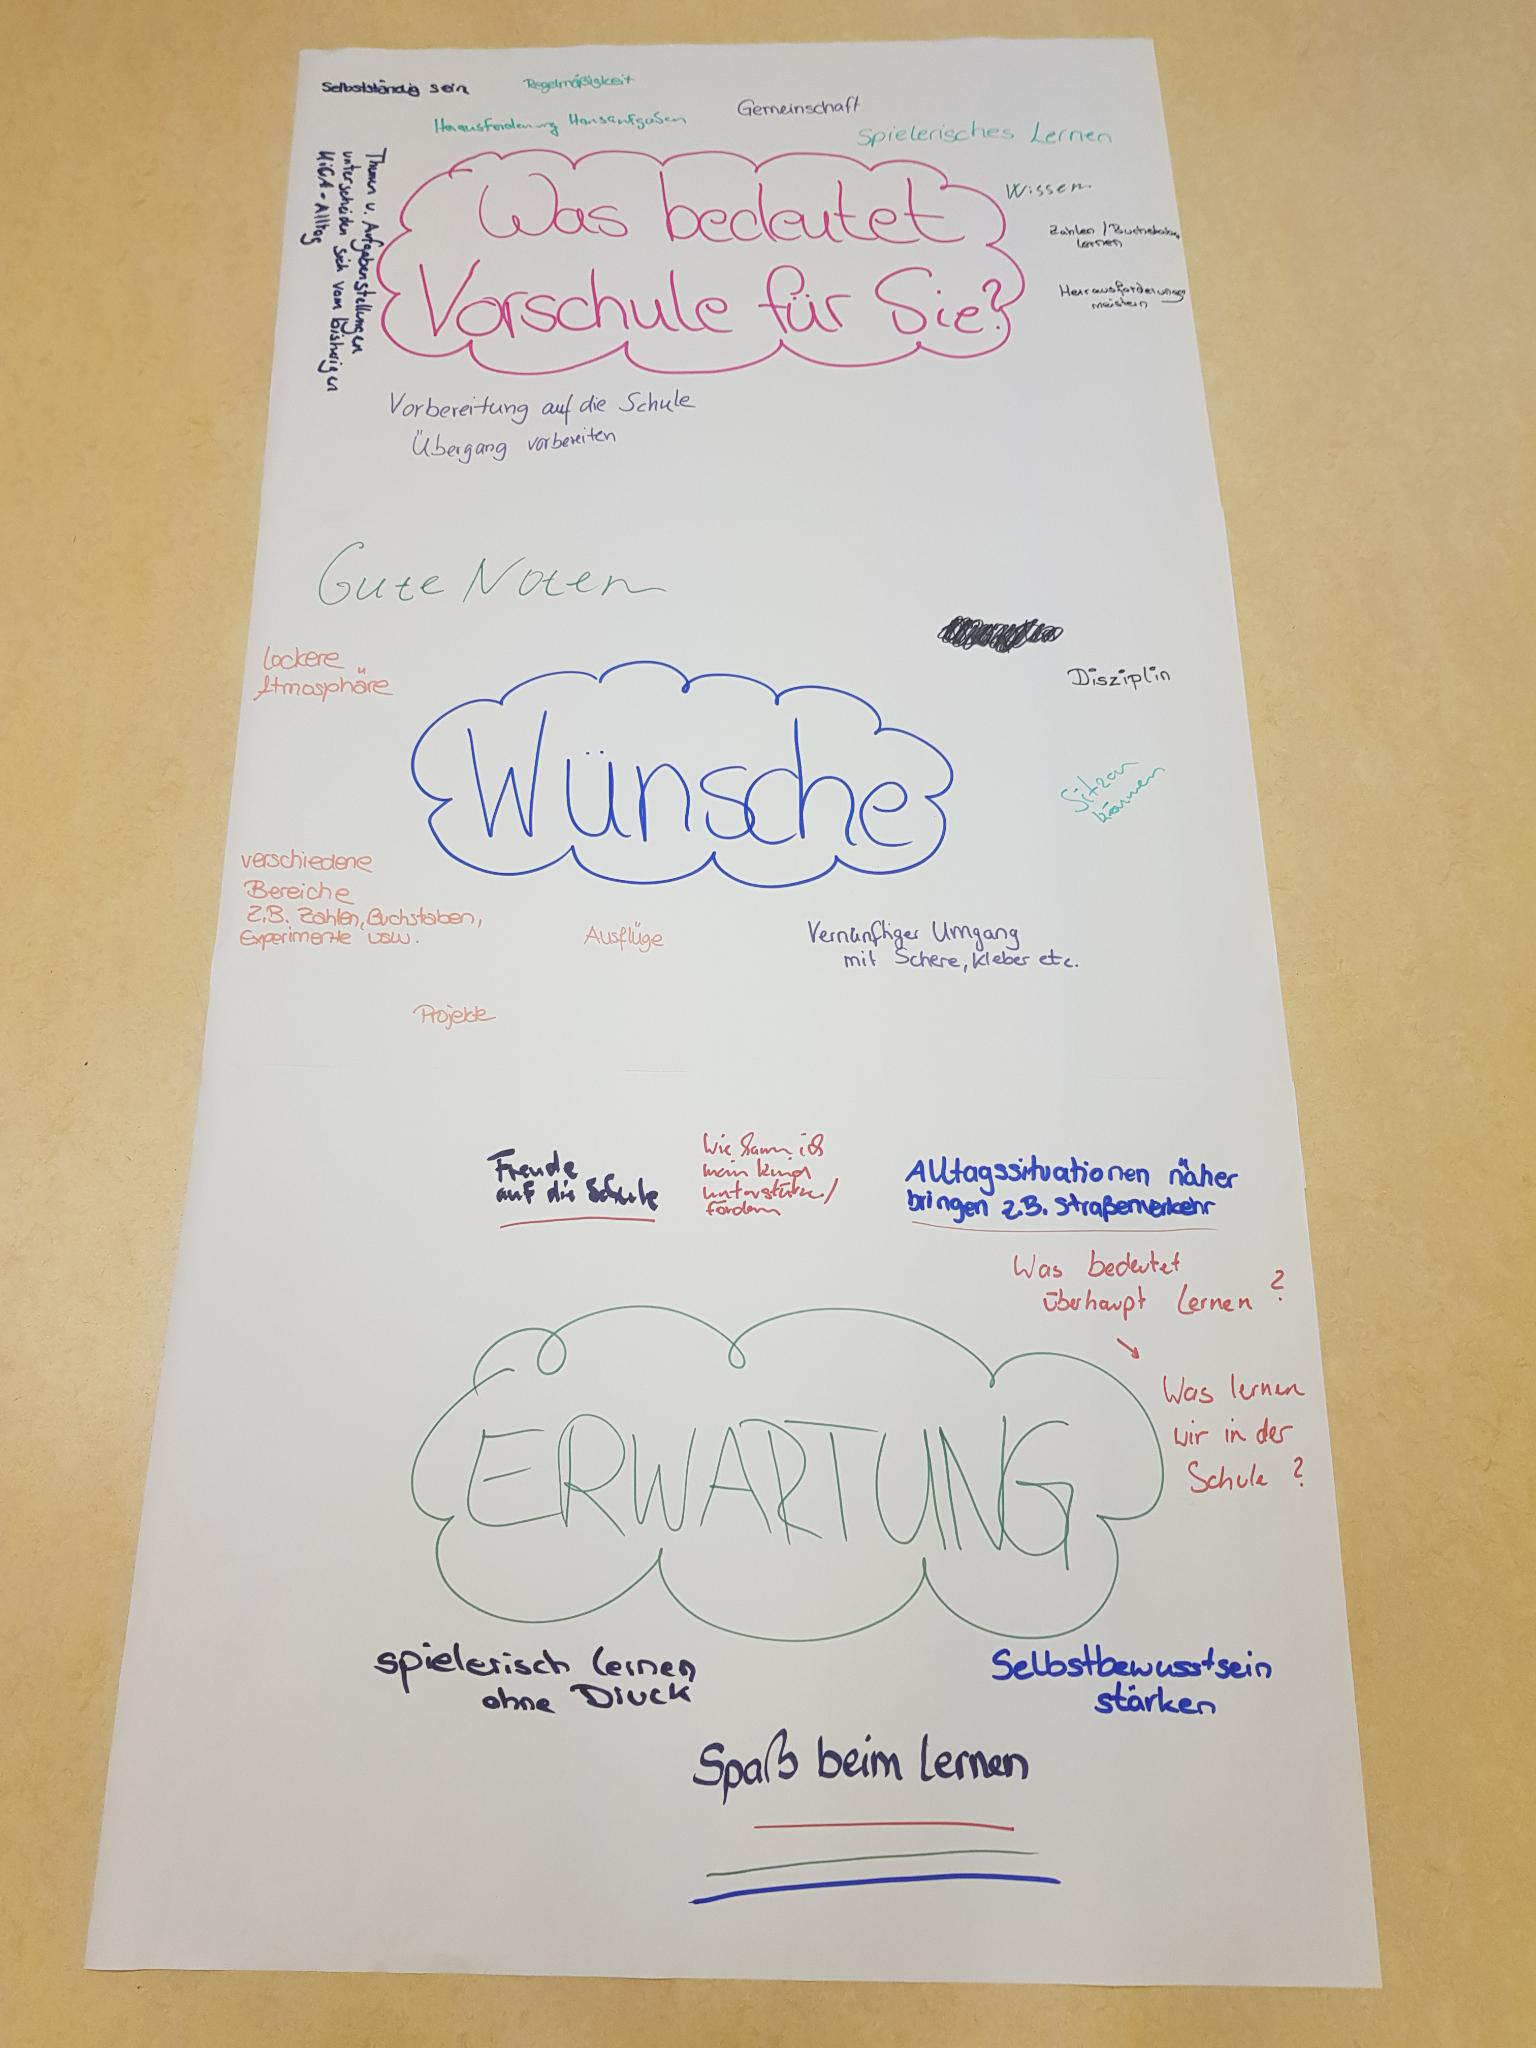 Selbstständig sein
Regelmäßigkeit
Herausforderung Hausaufgaben
Gemeinschaft
Spielerisches Lernen
Wissen
Zahlen / Buchstaben
lernen
Herausforderungen
meistern
Themen u. Aufgabenstellungen
unterscheiden sich vom bisherigen
KiGA-Alltag
Was bedeutet
Vorschule für Sie?
Vorbereitung auf die Schule
Übergang vorbereiten
Gute Noten
lockere
Atmosphäre
Disziplin
Wünsche
Sitzen
können
verschiedene
Bereiche
z.B. Zahlen, Buchstaben,
Experimente usw.
Ausflüge
Vernünftiger Umgang
mit Schere, Kleber etc.
Projekte
Freude
auf die Schule
Wie kann ich
mein Kind
unterstützen/
fördern
Alltagssituationen näher
bringen z.B. Straßenverkehr
Was bedeutet
überhaupt lernen ?
Was lernen
wir in der
Schule ?
ERWARTUNG
spielerisch lernen
ohne Druck
Selbstbewusstsein
stärken
Spaß beim lernen